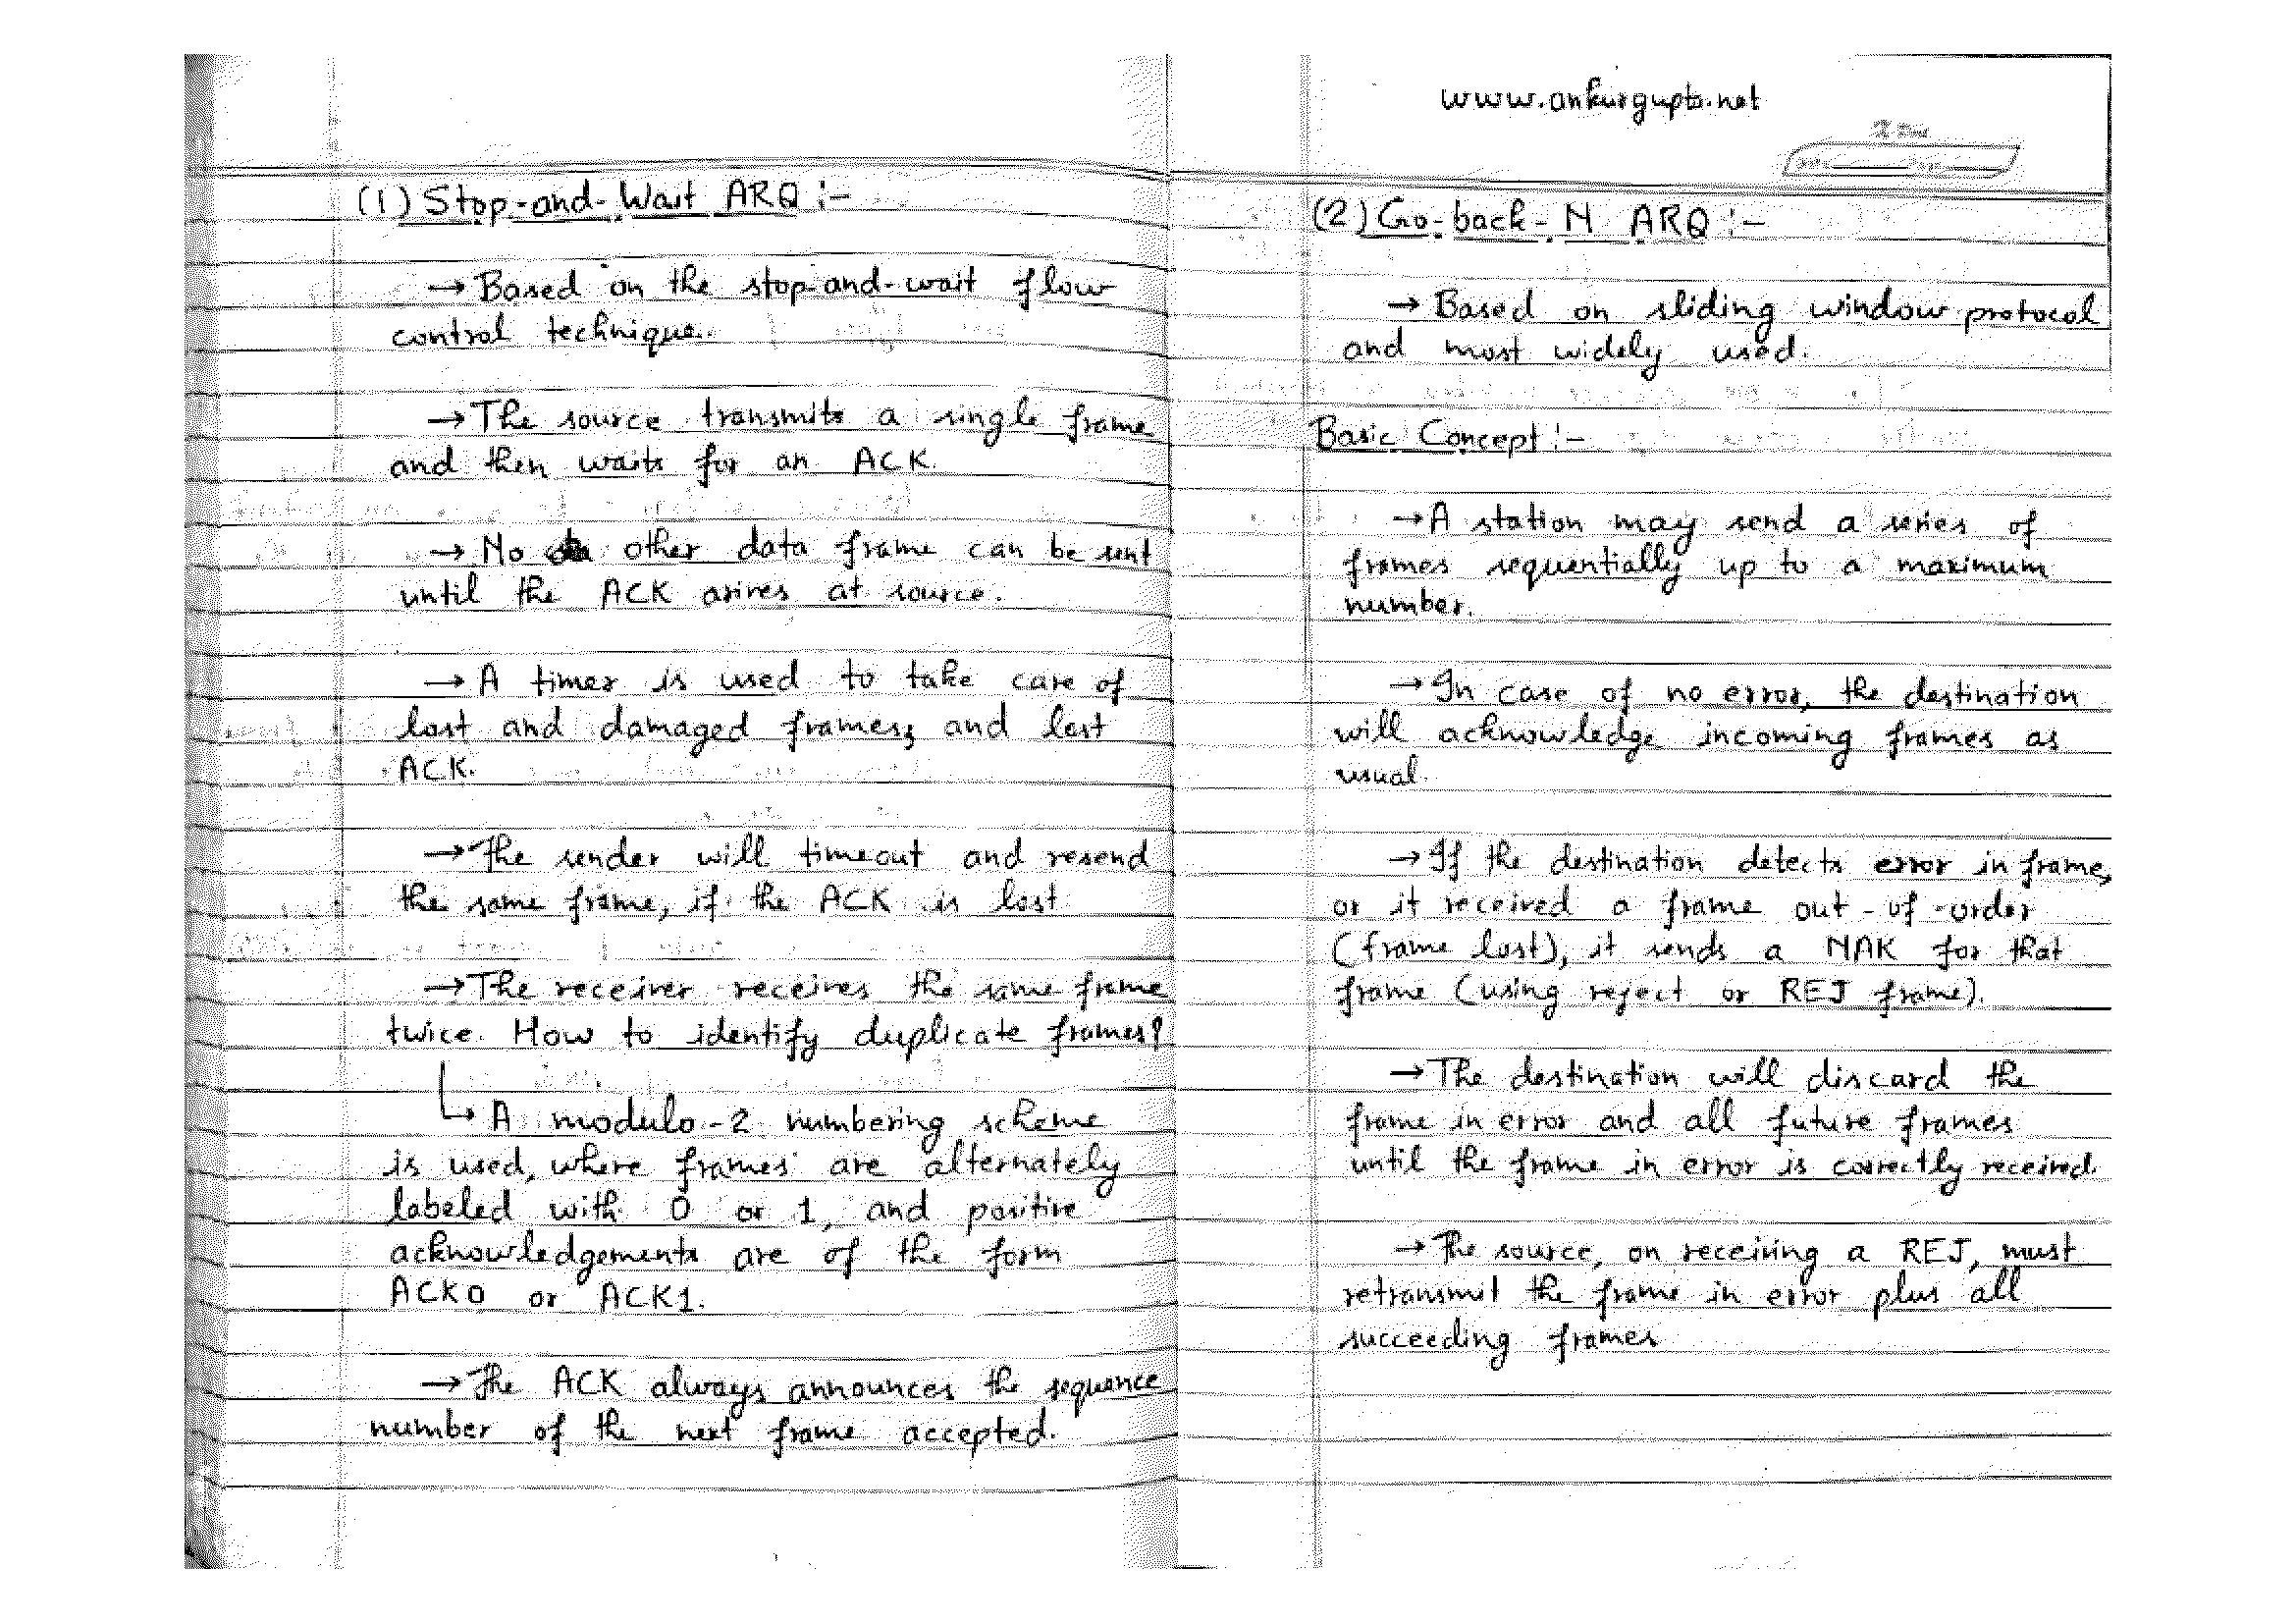 (1) Stop-and-Wait ARQ :-
→ Based on the stop-and-wait flow
control technique.
→ The source transmits a single frame
and then waits for an ACK.
→ No other data frame can be sent
until the ACK arives at source.
→ A timer is used to take care of
lost and damaged frames, and lost
ACK.
→ The sender will timeout and resend
the same frame, if the ACK is lost
→ The receiver receives the same frame
twice. How to identify duplicate frames?
↳ A modulo-2 numbering scheme
is used, where frames are alternately
labeled with 0 or 1, and positive
acknowledgements are of the form
ACK0 or ACK1.
→ The ACK always announces the sequence
number of the next frame accepted.
www.ankurgupta.net
(2) Go-back-N ARQ :-
→ Based on sliding window protocol
and most widely used.
Basic Concept :-
→ A station may send a series of
frames sequentially up to a maximum
number.
→ In case of no error, the destination
will acknowledge incoming frames as
usual.
→ If the destination detects error in frame,
or it received a frame out-of-order
(frame lost), it sends a NAK for that
frame (using reject or REJ frame).
→ The destination will discard the
frame in error and all future frames
until the frame in error is correctly received.
→ The source, on receiving a REJ, must
retransmit the frame in error plus all
succeeding frames